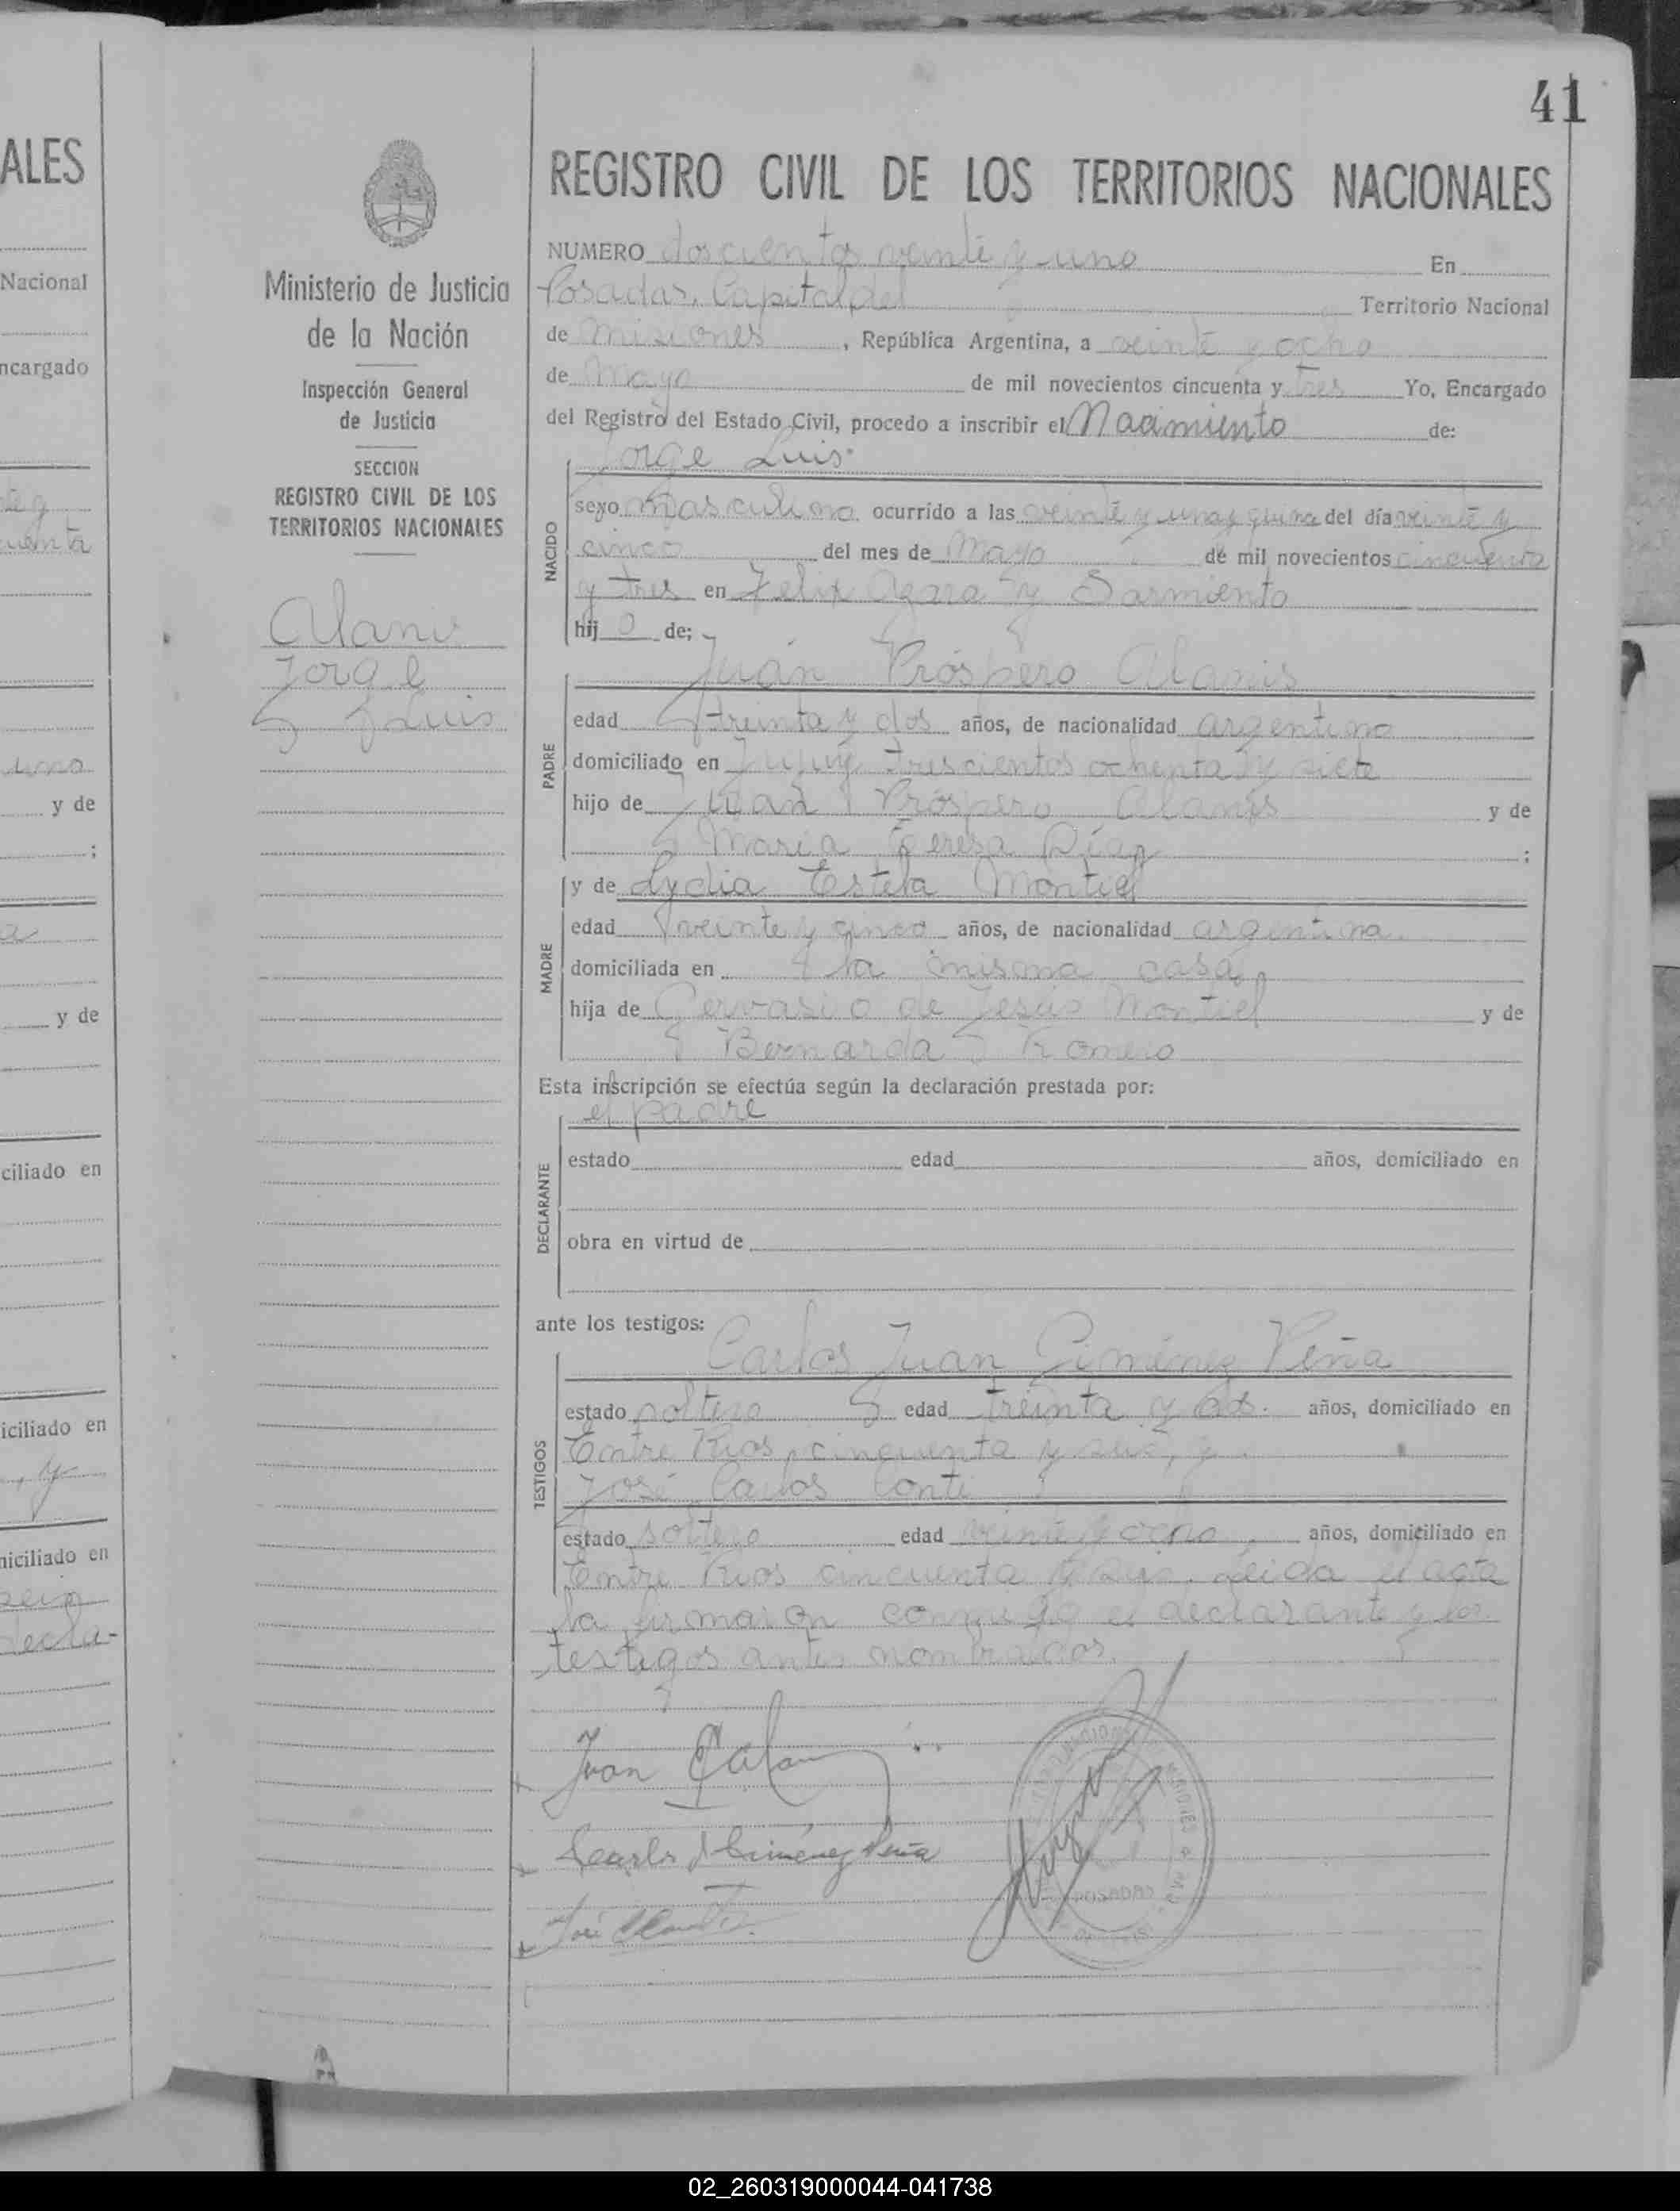 41
ALES
Nacional
ncargado
uenta
uno
y de
;
a
y de
ciliado en
iciliado en
, y
niciliado en
decla-
Ministerio de Justicia
de la Nación
Inspección General
de Justicia
SECCION
REGISTRO CIVIL DE LOS
TERRITORIOS NACIONALES
Alanis
Jorge
Luis
REGISTRO CIVIL DE LOS TERRITORIOS NACIONALES
NUMERO doscientos veinte y uno En
Posadas, Capital del Territorio Nacional
de Misiones, República Argentina, a veinte y ocho
de Mayo de mil novecientos cincuenta y tres Yo, Encargado
del Registro del Estado Civil, procedo a inscribir el Nacimiento de:
Jorge Luis
NACIDO
sexo masculino ocurrido a las veinte y una y quince del día veinte y
cinco del mes de Mayo de mil novecientos cincuenta
y tres en Felix Azara y Sarmiento
hijo de;
PADRE
Juán Próspero Alanis
edad treinta y dos años, de nacionalidad argentino
domiciliado en Jujuy trescientos ochenta y siete
hijo de Juan Próspero Alanis y de
Maria Teresa Díaz ;
MADRE
y de Lydia Estela Montiel
edad veinte y cinco años, de nacionalidad argentina
domiciliada en la misma casa
hija de Gervasio de Jesús Montiel y de
Bernarda Romero
Esta inscripción se efectúa según la declaración prestada por:
DECLARANTE
el padre
estado edad años, domiciliado en
obra en virtud de
ante los testigos:
TESTIGOS
Carlos Juan Giménez Peña
estado soltero edad treinta y dos. años, domiciliado en
Entre Rios, cincuenta y seis, y
José Carlos Conti
estado soltero edad veinte y ocho, años, domiciliado en
Entre Rios cincuenta y seis. Leida el acta
la firmaron conmigo el declarante y los
testigos antes nombrados.
Juan P Alanis
Carlos J Giménez Peña
José C Conti
POSADAS
02_260319000044-041738